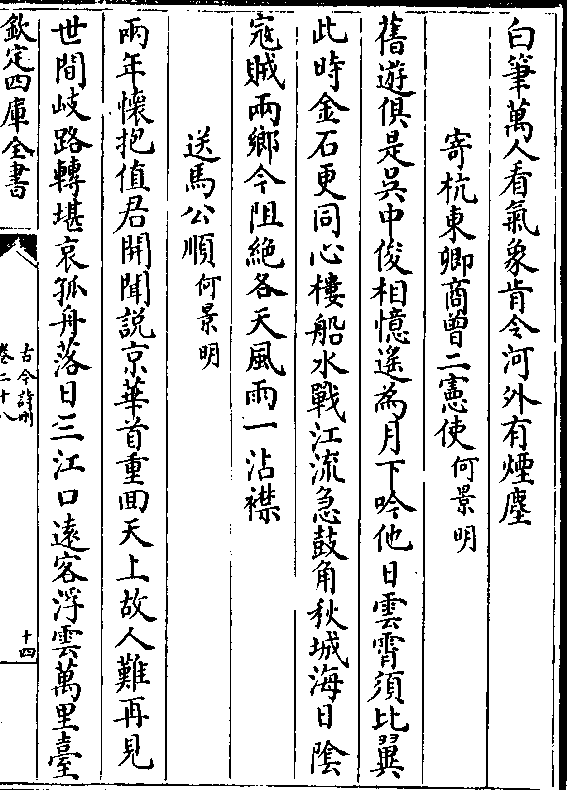 白筆萬人看氣象肯令河外有煙塵
寄杭東卿商曾二憲使何景明
舊遊俱是吳中俊相憶遙為月下吟他日雲霄須比翼
此時金石更同心樓船水戰江流急鼓角秋城海日陰
寇賊兩鄉今阻絶各天風雨一沾襟
送馬公順何景明
兩年懷抱值君開聞説京華首重回天上故人難再見
世間岐路轉堪哀孤舟落日三江口遠客浮雲萬里臺
欽定四庫全書
古今詩刪
卷二十八
十四